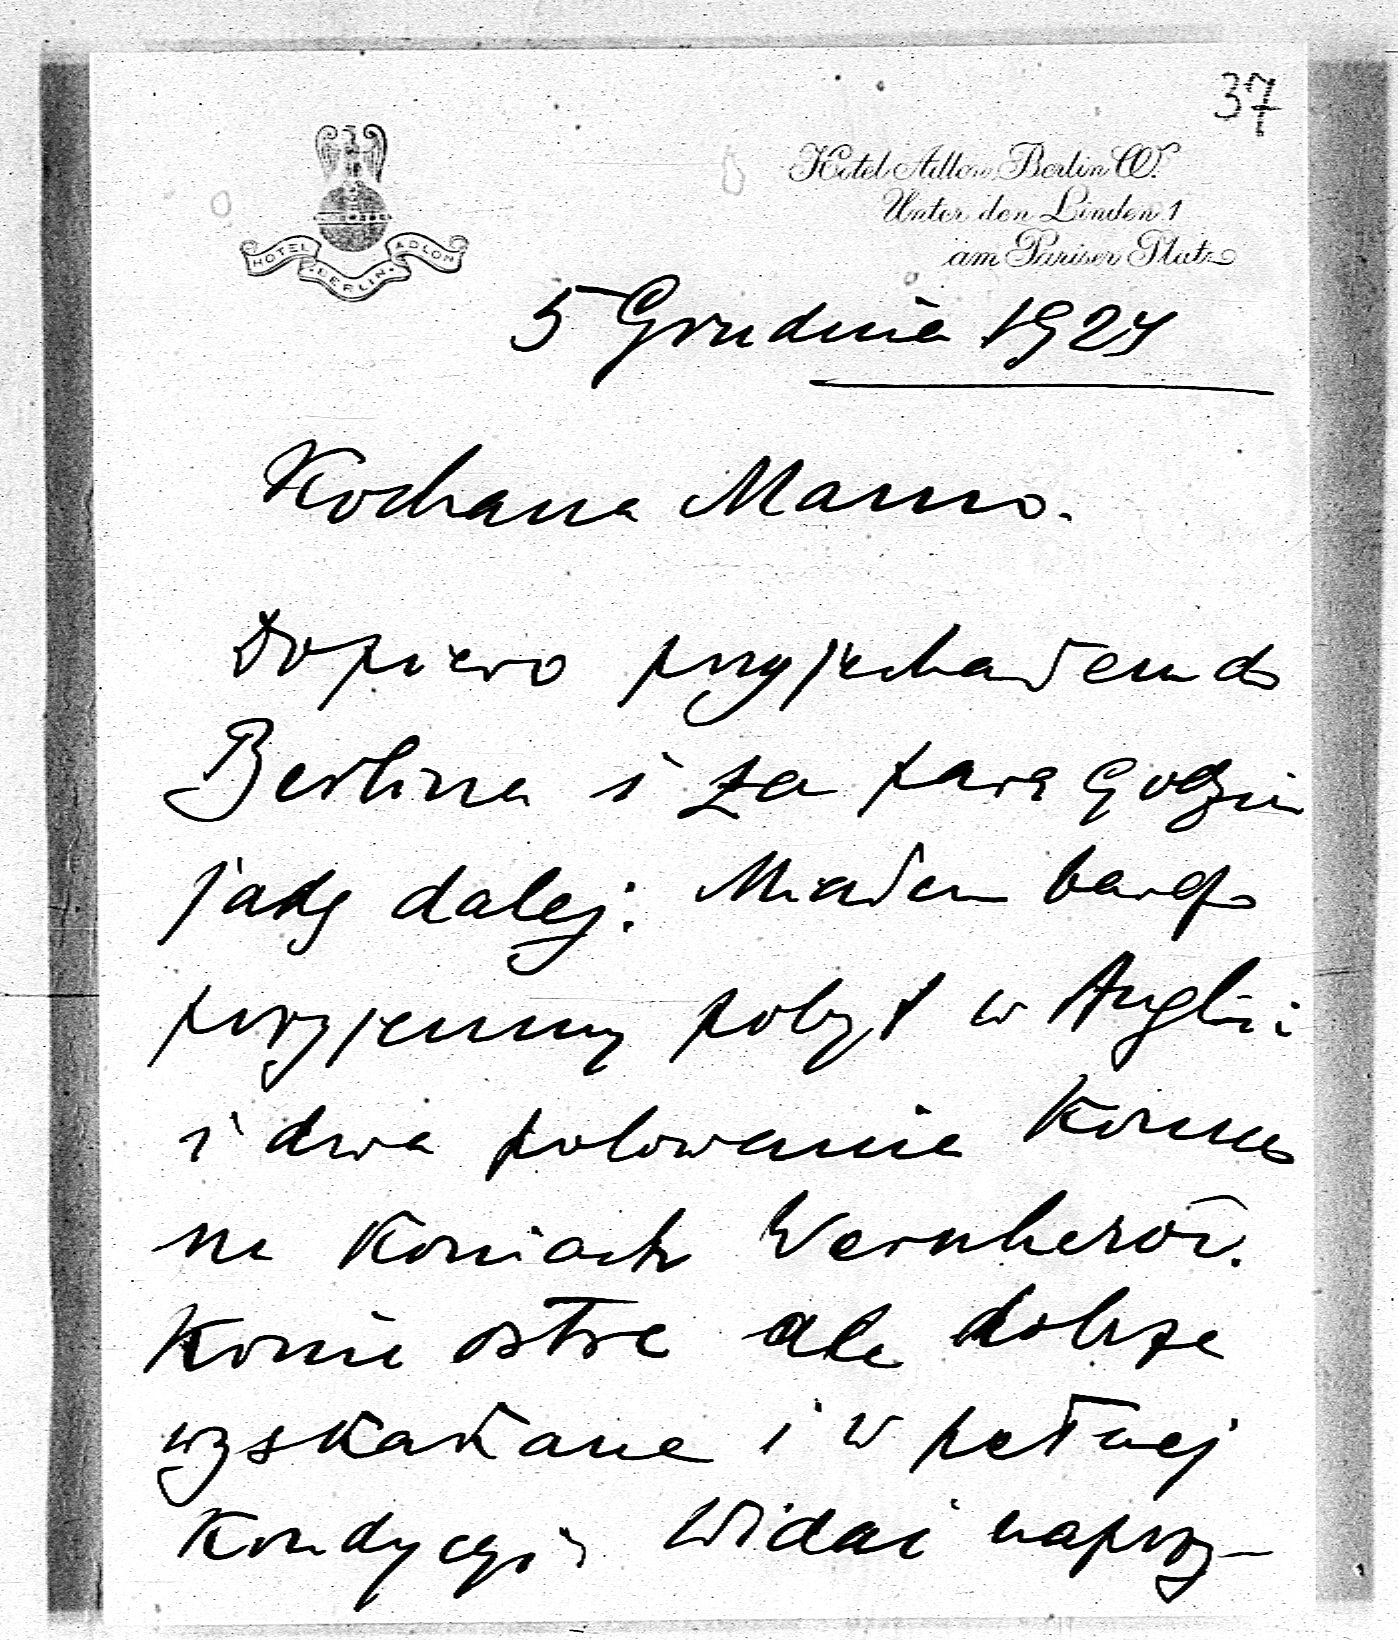 37
HOTEL ADLON
BERLIN
Hotel Adlon, Berlin W.
Unter den Linden 1
am Pariser Platz
5 Grudnia 1924
Kochana Mamo.
Dopiero przyjechałem do
Berlina i za parę godzin
jadę dalej. Miałem bardzo
przyjemny pobyt w Anglii
i dwa polowania konno
na koniach Wernherów.
Konie ostre ale dobrze
wyskakane i w pełnej
kondycyi. Widać naprzy-